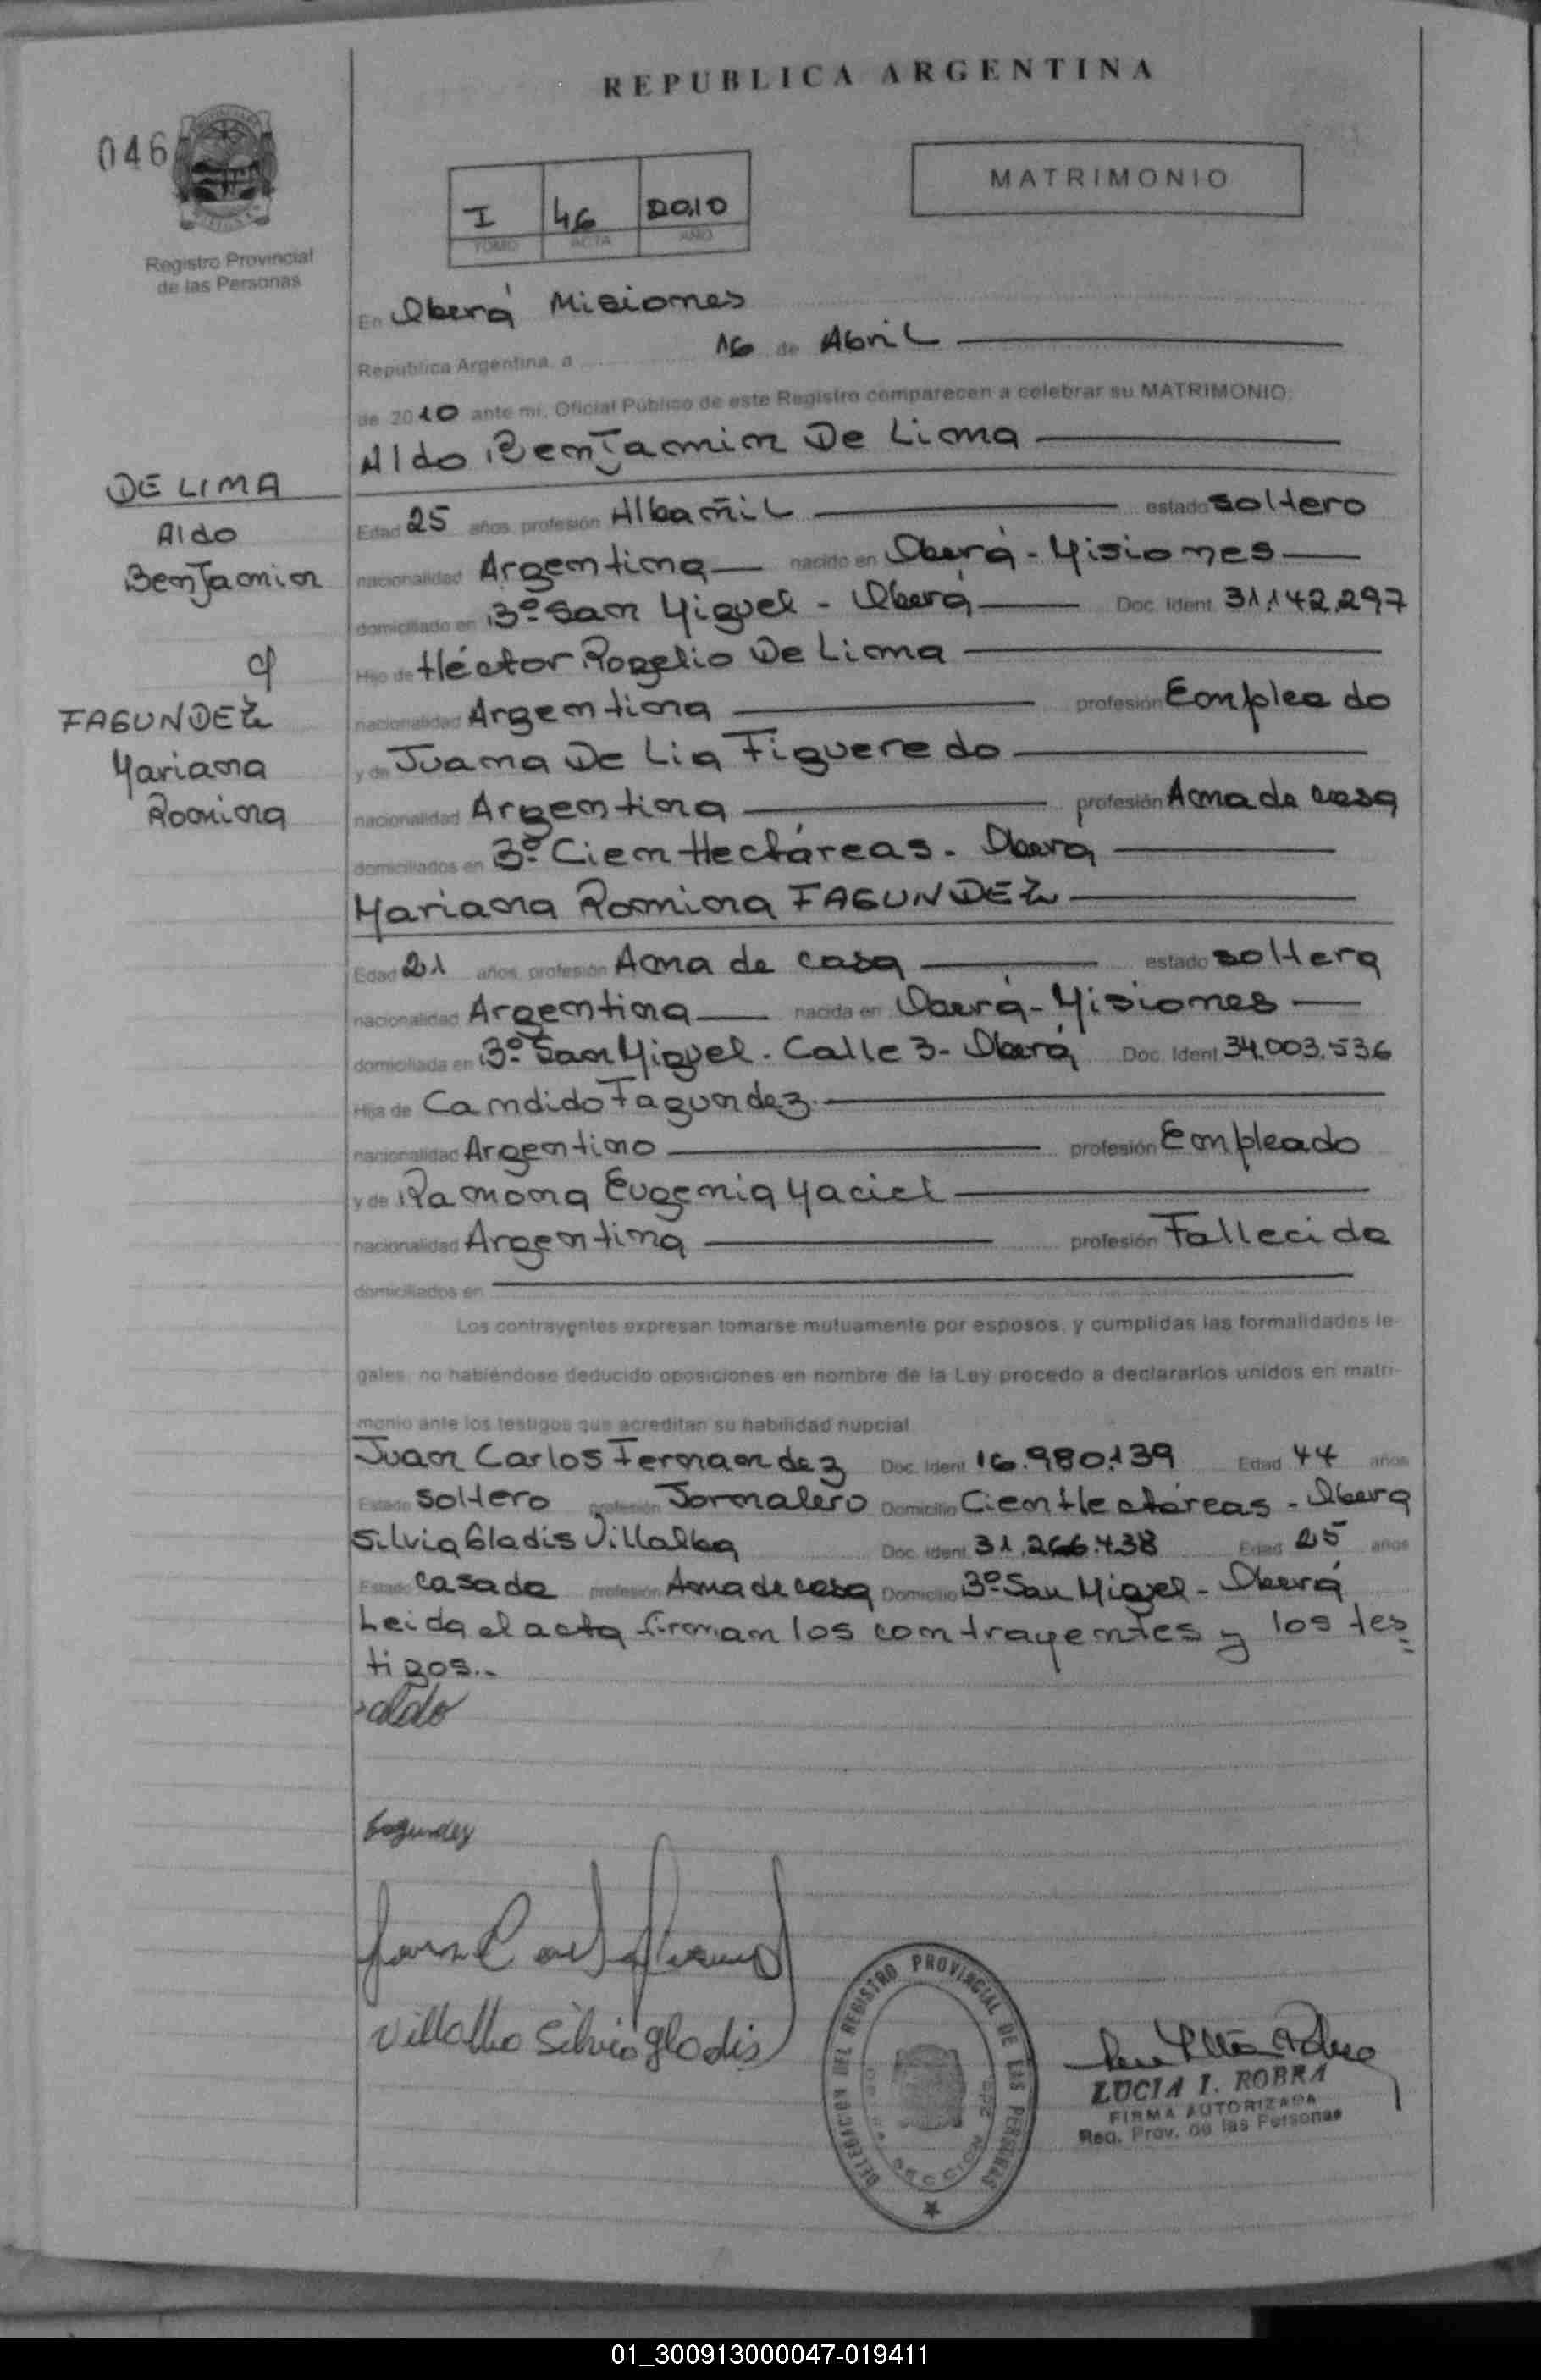 REPUBLICA ARGENTINA
046
MATRIMONIO
I 46 2010
TOMO ACTA AÑO
Registro Provincial
de las Personas
En Oberá Misiones
Republica Argentina, a 16 de Abril
de 2010 ante mi, Oficial Público de este Registro comparecen a celebrar su MATRIMONIO:
Aldo Benjamin De Lima
DE LIMA
Aldo
Benjamin
c/
FAGUNDEZ
Mariana
Romina
Edad 25 años, profesión Albañil estado soltero
nacionalidad Argentina nacido en Oberá - Misiones
domiciliado en Bº San Miguel - Oberá Doc. Ident. 31.142.297
Hijo de Héctor Rogelio De Lima
nacionalidad Argentina profesión Empleado
y de Juana De Lia Figueredo
nacionalidad Argentina profesión Ama de casa
domiciliados en Bº Cien Hectáreas - Oberá
Mariana Romina FAGUNDEZ
Edad 21 años, profesión Ama de casa estado soltera
nacionalidad Argentina nacida en Oberá - Misiones
domiciliada en Bº San Miguel - Calle 3 - Oberá Doc. Ident. 34.003.536
Hija de Candido Fagundez
nacionalidad Argentino profesión Empleado
y de Ramona Eugenia Maciel
nacionalidad Argentina profesión Fallecida
domiciliados en
Los contrayentes expresan tomarse mutuamente por esposos, y cumplidas las formalidades le-
gales, no habiéndose deducido oposiciones en nombre de la Ley procedo a declararlos unidos en matri-
monio ante los testigos que acreditan su habilidad nupcial
Juan Carlos Fernandez Doc. Ident. 16.980.139 Edad 44 años
Estado soltero profesión Jornalero Domicilio Cien Hectáreas - Oberá
Silvia Gladis Villalba Doc. Ident. 31.266.438 Edad 25 años
Estado casada profesión Ama de casa Domicilio Bº San Miguel - Oberá
Leida el acta firman los contrayentes y los tes
tigos.-
aldo
fagundez
Villalba Silvia gladis
DELEGACION DEL REGISTRO PROVINCIAL DE LAS PERSONAS
LUCIA I. ROBRA
FIRMA AUTORIZADA
Reg. Prov. de las Personas
01_300913000047-019411